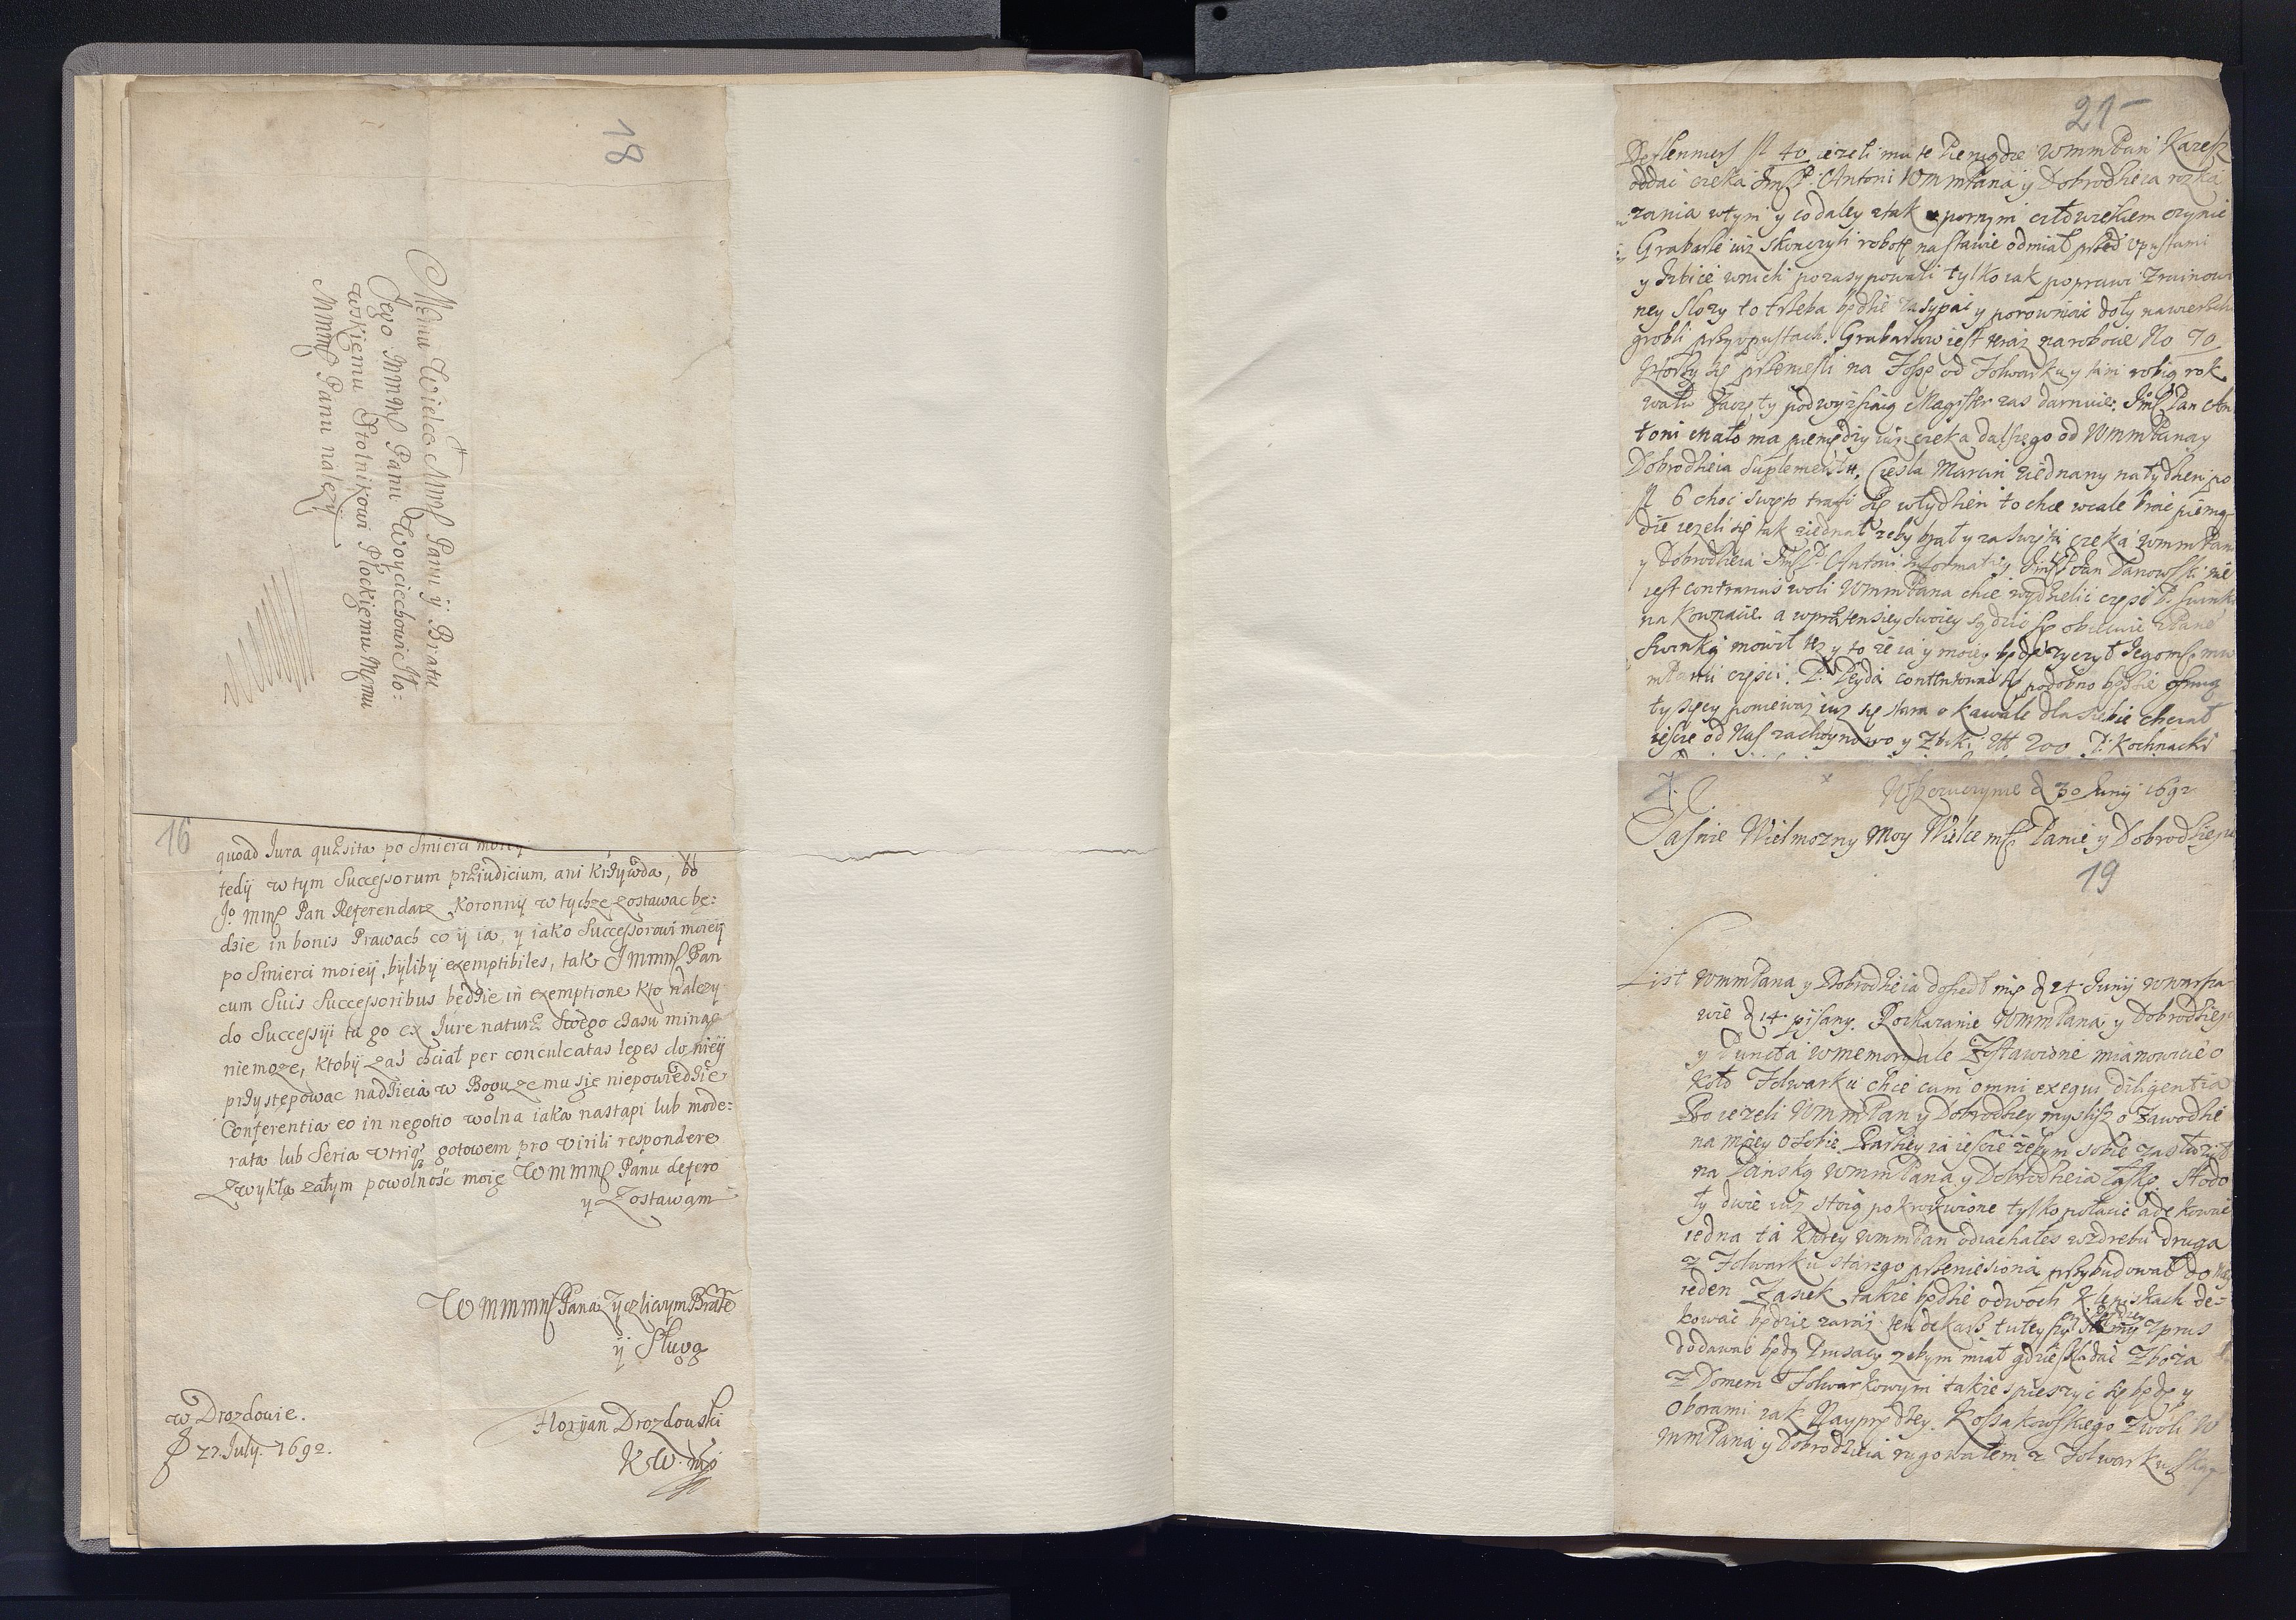 18
Memu Wielce Mmś Panu ÿ Bratu
Jego Mmmś Panu Woyciechowi
wskiemu Stolnikowi Płockiemu Memu
Mmmś Panu należÿ
16
quoad Jura quæsita po Smierci moieÿ
tedÿ w tym Successorum præiudicium, ani krzywda, bo
Jº mmś Pan Referendarz Koronnÿ w tychże zostawac bę:
dzie in bonis Prawach co ÿ ia, ÿ iako Successorowi moieÿ
po Smierci moieÿ bÿlibÿ exemptibiles, tak J mmmś Pan
cum Suis Successoribus będzie in exemptione kto należy
do Successÿi tu go ex Jure naturæ Swego czasu minąc
niemoże, ktobÿ zaś chciał per conculcatas leges do nieÿ
przystępowac nadzieia w Bogu że mu się niepowiedzie
Conferentia eo in negotio wolna iaka nastąpi lub mode:
rata lub Seria utriq gotowem pro virili respondere
Zwykłą zatym powolność moię W M mmś Panu defero
ÿ Zostawam
W M mmmś Pana Życzliwym Bratē
ÿ Sługą
Floryan Drozdouski
KW. mp
w Drozdowie.
D 27. July. 1692.
21
fl 40 iezeli mu te Pieniądze WmmPan Kazesz
oddac czeka JmśP. Antoni WmmPana y Dobrodzieia rozka
zania wtym y co daley z tak upornym człowiekiem czynic
Grabarze iuz skonczyli robotę na stawie odmiał przed upustami
y Izbice wnich pozasypowali tylko iak poprawi Zruinowa
ney to trzeba będzie zasypac y porowniac doły nawierzchu
grobli przy upustach. Grabarzow iest teraz narobocie No 70
ktorzy się przeniesli na Fossę od Folwarku y tam robią rok
wału Zaczęty podwyzszaią Magister zas darnuie. Jmś Pan An
toni mało ma pieniędzy iuz czeka dalszego od WmmPana y
Dobrodzieia Suplementu. Ciesla Marcin ziednany natydzien po
fl 6 choc swięto trafi się wtydzien to chce wcale brac pienią
dze iezeli się tak ziednał zeby brał y za swięta czeka WmmPana
y Dobrodzieia JmśP. Antoni informatiey Jmś Pan Danowski nie
iest contrarius woli WmmPana chce wydzielic częsc P. Swinki
na Kownacie. a wprætensiey swoiey sądzic się obiecuie zPanē
Swinką mowił tez y to ze ia y moiey będę zyczył Jegomści mu
mPanu częsci. P. Peyda contentowac się podobno będzie osmią
tysięcy poniewaz iuz się stara o kawale dla siebie chciał
iescie od Nas zachoynowo y Zbik. tt 200 P. Kochnacki
Wszczuczynie d 30 Juny 1692
Jasnie Wielmozny Moy Wielce mś Panie y Dobrodzieju
19
List WmmPana y Dobrodzieia doszedł mię d 24 Junij wwarsza
wie d 14 pisany. Roskazanie WmmPana y Dobrodzieja
y Puncta wmemoryale Zostawione mianowicie o
koło Folwarku chcę cum omni exequi diligentia
Bo iezeli WmmPan y Dobrodziey myslisz o Zawodzie
na moiey osobie Bardziey ia iescie zebym sobie zasłuzył
na Panską WmmPana y Dobrodzieia łaskę. Stodo
ły dwie iuz stoią pokrokwione tylko połacic a dekowac
iedna ta ktorey WmmPan odiachałes wzdrebu druga
z Folwarku starego przeniesiona przybudował do niey
ieden Zasiek takze będzie odwoch Klepiskach de-
kowac będzie zaraz ten dekarz tuteyszy
dodawac będą Prusacy zebym miał gdzie składac Zboza
Z Domem Folwarkowym takze spieszyc się będę y
Oborami iak Nayprędzey. Kossakowskiego Zwoli W
mmPana y Dobrodzieia rugowałem z Folwarku